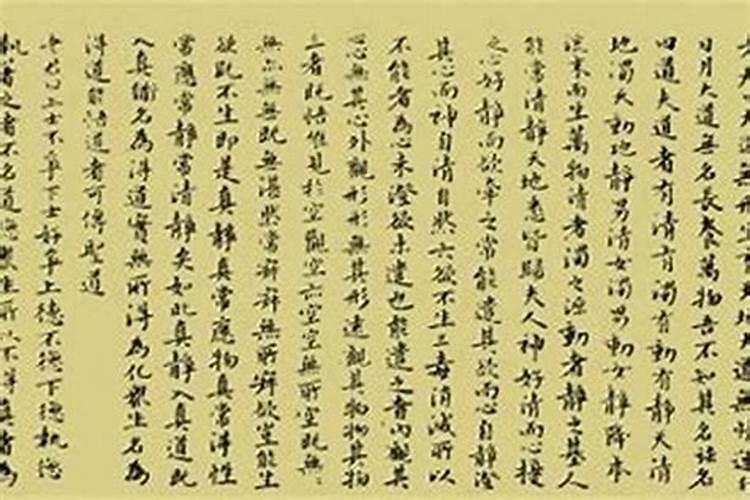 日月大道無名長養萬物吾不知其名強名
曰道夫道者有清有濁有動有靜天清
地濁天動地靜男清女濁男動女靜降本
流末而生萬物清者濁之源動者靜之基人
能常清靜天地悉皆歸夫人神好清而心擾
之心好靜而欲牽之常能遣其欲而心自靜澄
其心而神自清自然六欲不生三毒消滅所以
不能者為心未澄欲未遣也能遣之者內觀其
心無其心外觀形形無其形遠觀其物物其物
三者既悟唯見於空觀空亦空空無所空既無、
無亦無無既無湛然常寂寂無所寂欲豈能生
欲既不生即是真靜真常應物真常得性
常應常靜常清靜矣如此真靜入真道既
入真道名為得道實無所得為化眾生名為
得道能悟道者可傳聖道
老君曰上士不爭下士好爭上德不德下德執德
執著之者不名道德眾生所以不得真道者為